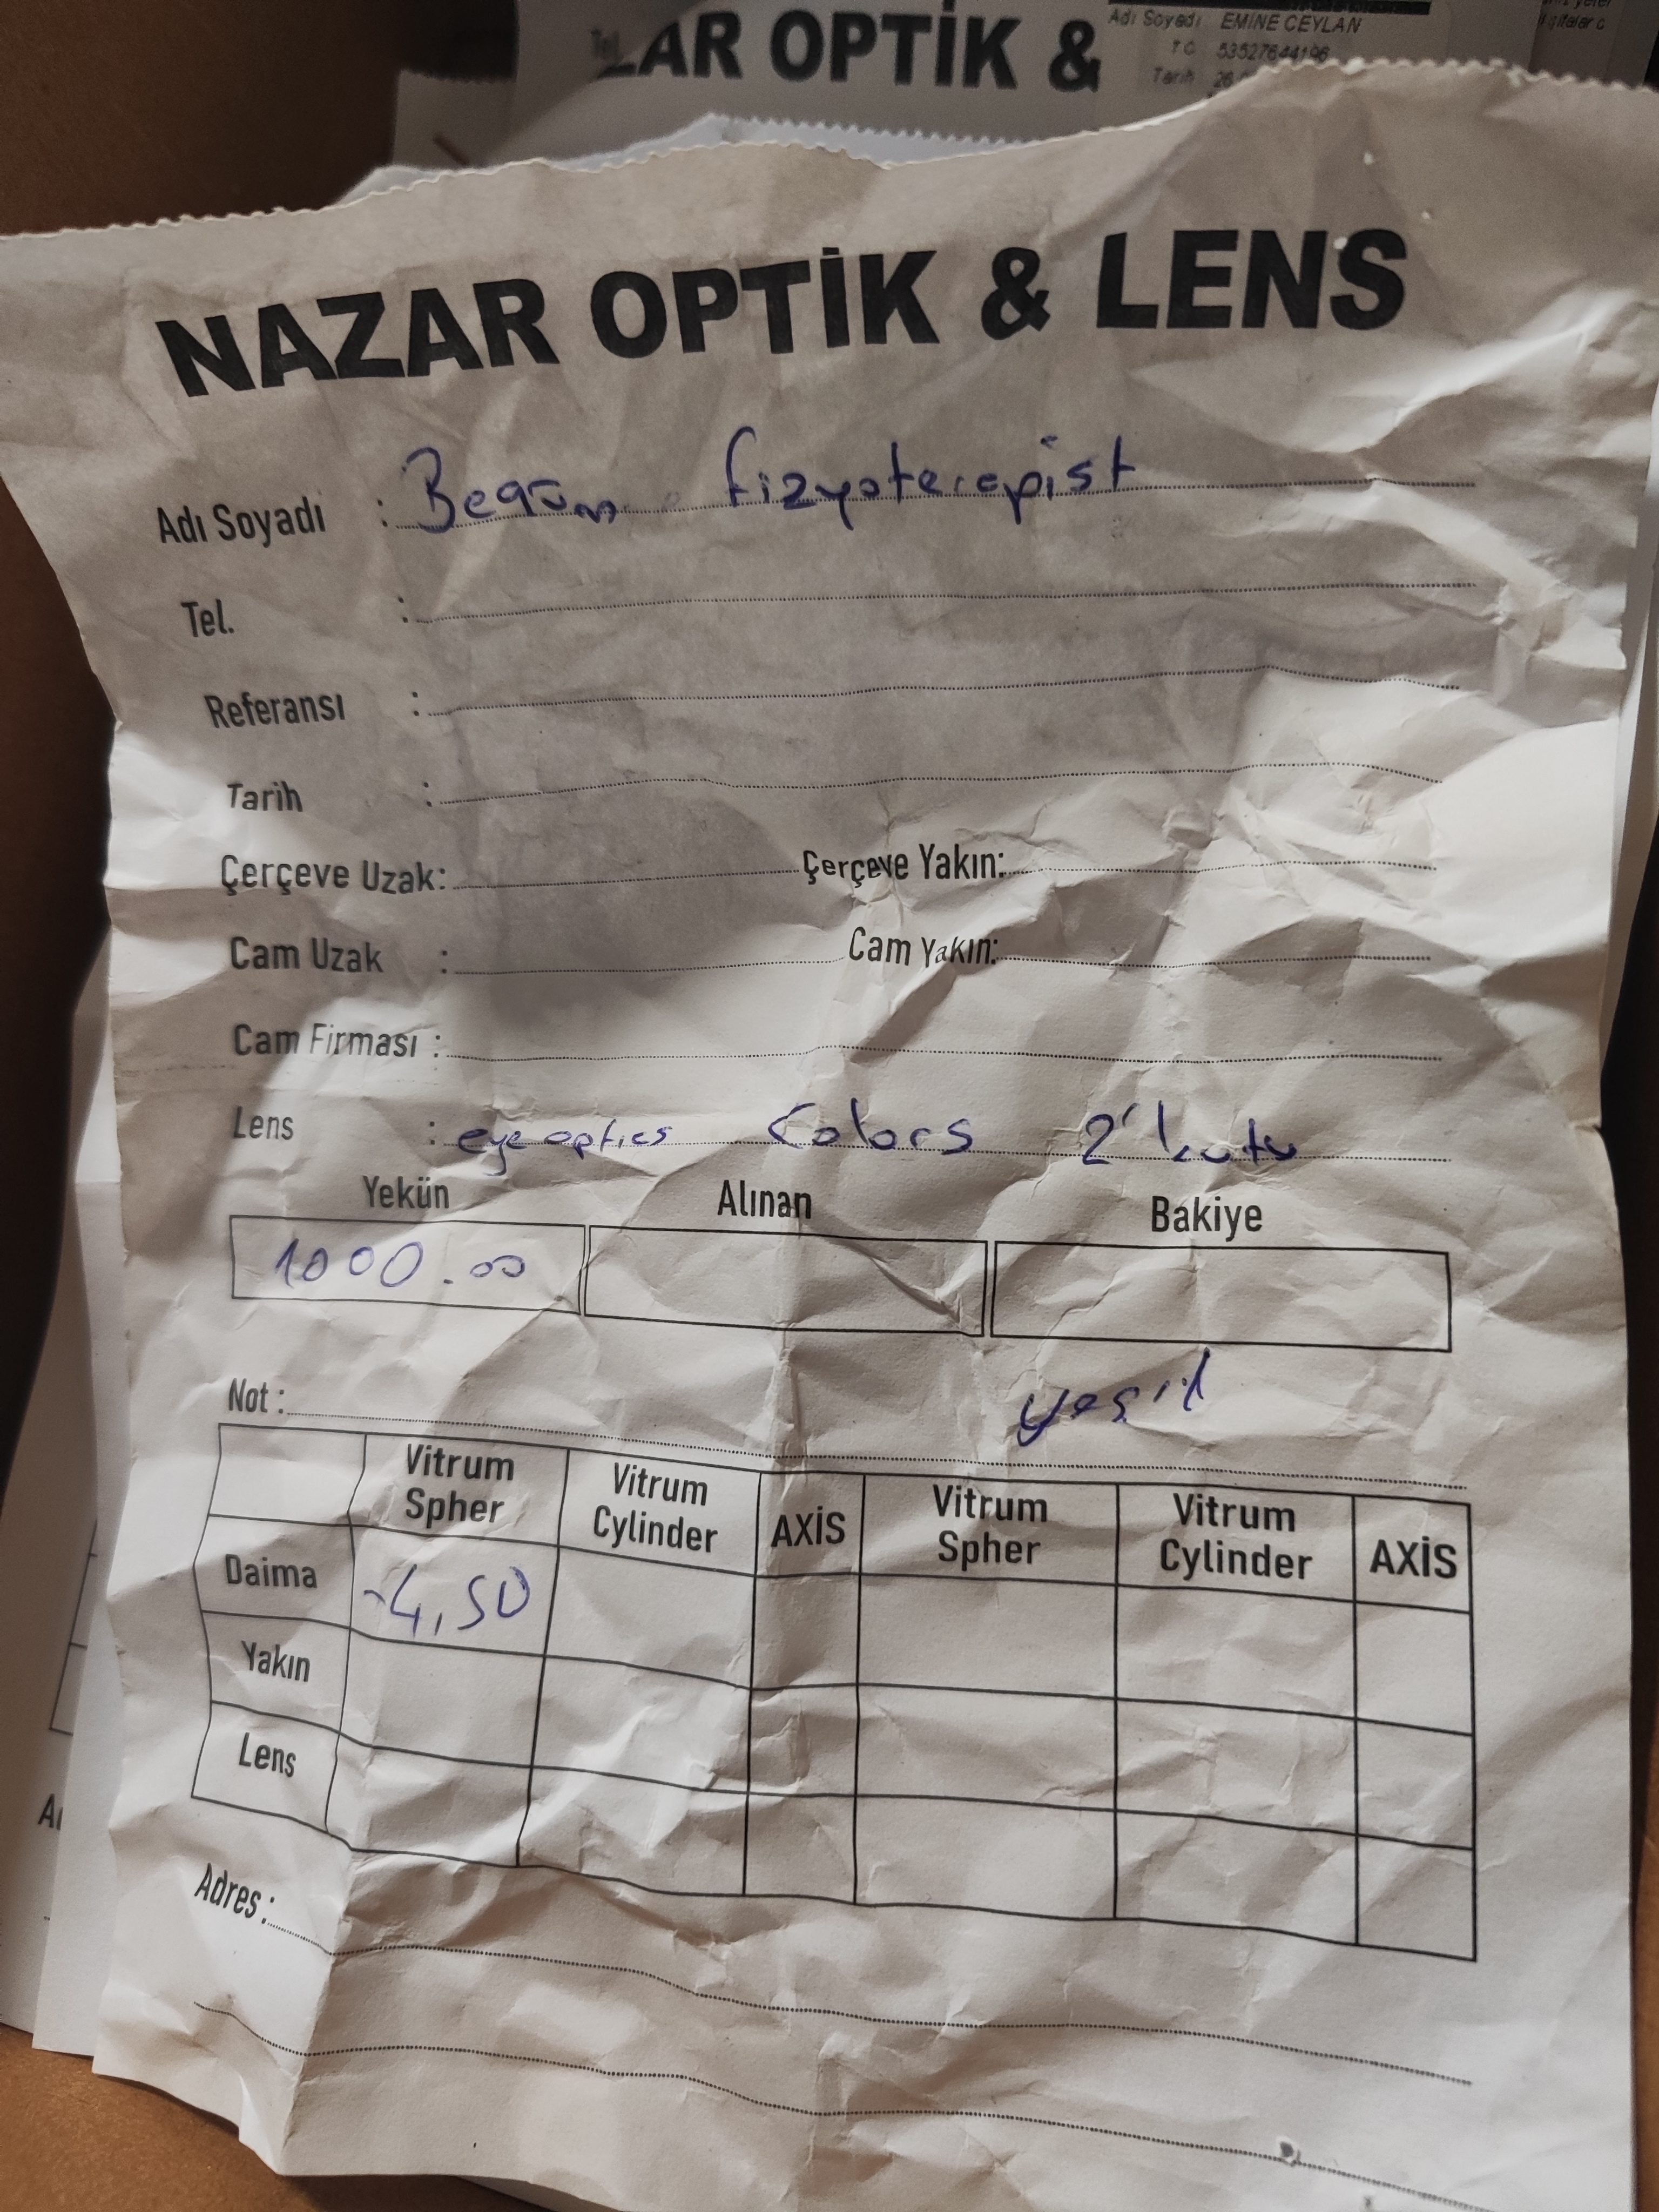 AR OPTİK &
Adı Soyadı EMİNE CEYLAN
TC 53527644196
Tarih 26
NAZAR OPTİK & LENS
Adı Soyadı : Begüm fizyoterepist
Tel. :
Referansı :
Tarih :
Çerçeve Uzak: Çerçeve Yakın:
Cam Uzak : Cam Yakın:
Cam Firması :
Lens : eye optics Colors 2 kutu
Yekün Alınan Bakiye
1000.00
yeşil
Not :
Vitrum Spher Vitrum Cylinder AXİS Vitrum Spher Vitrum Cylinder AXİS
Daima -4,50
Yakın
Lens
Adres :